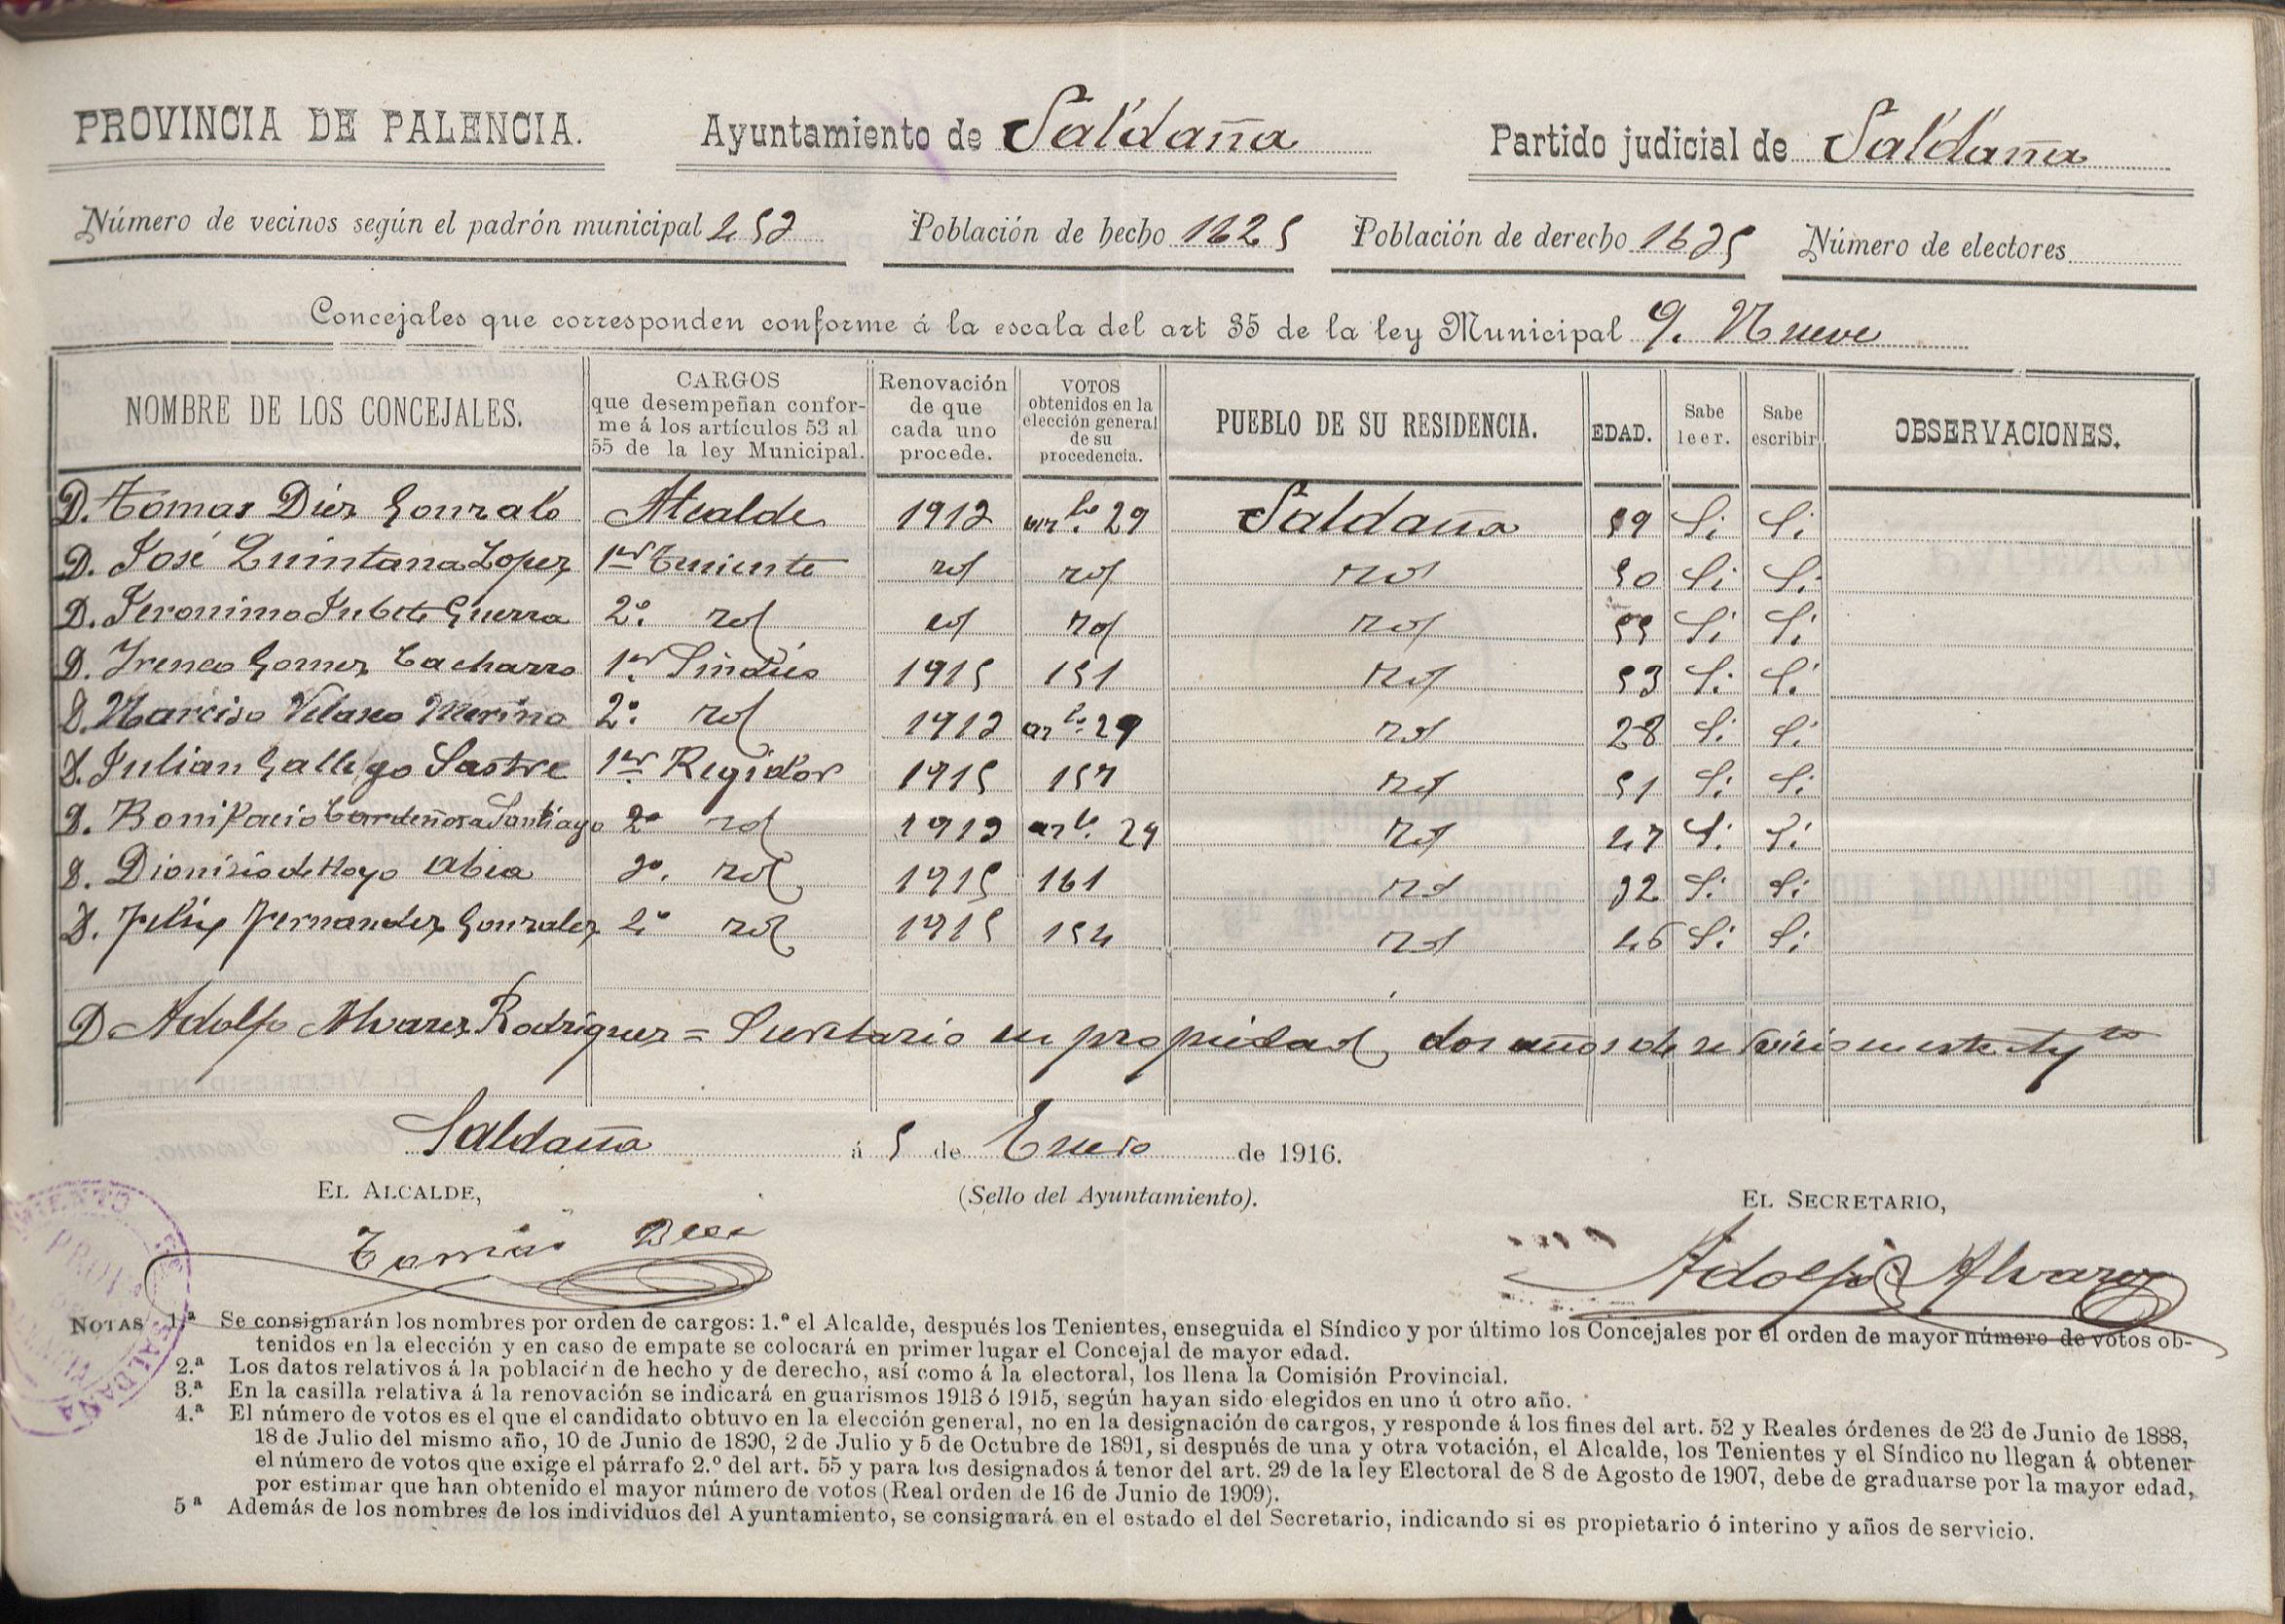 PROVINCIA DE PALENCIA. Ayuntamiento de Saldaña Partido judicial de Saldaña
Número de vecinos según el padrón municipal 452 Población de hecho 1625 Población de derecho 1625 Número de electores
Concejales que corresponden conforme á la escala del art 35 de la ley Municipal 9. Nueve
NOMBRE DE LOS CONCEJALES.
CARGOS
que desempeñan confor-
me á los artículos 53 al
55 de la ley Municipal.
Renovación
de que
cada uno
procede.
VOTOS
obtenidos en la
elección general
de su
procedencia.
PUEBLO DE SU RESIDENCIA.
EDAD.
Sabe
leer.
Sabe
escribir
OBSERVACIONES.
D. Tomas Diez Gonzalo Alcalde 1913 artlo. 29 Saldaña 59 Si Si
D. José Quintana Lopez 1er Teniente id id id 50 Si Si
D. Jeronimo Jubete Guerra 2º id id id id 55 Si Si
D. Ireneo Gomez Cacharro 1er Sindico 1915 151 id 53 Si Si
D. Narciso Velasco Merino 2º id 1913 arlo. 29 id 28 Si Si
D. Julian Gallego Sastre 1er Regidor 1915 157 id 51 Si Si
D. Bonifacio Cardeñosa Santiago 2º id 1913 arlo. 29 id 47 Si Si
D. Dionisio de Hoyo Abia 3º. id 1915 161 id 32 Si Si
D. Felix Fernandez Gonzalez 4º id 1915 154 id 46 Si Si
D Adolfo Alvarez Rodriguez = Secretario en propiedad, dos años de servicio en este Aytto
Saldaña á 5 de Enero de 1916.
EL ALCALDE, (Sello del Ayuntamiento). EL SECRETARIO,
Tomás Diez Adolfo Alvarez
NOTAS 1.ª Se consignarán los nombres por orden de cargos: 1.º el Alcalde, después los Tenientes, enseguida el Síndico y por último los Concejales por el orden de mayor número de votos ob-
tenidos en la elección y en caso de empate se colocará en primer lugar el Concejal de mayor edad.
2.ª Los datos relativos á la población de hecho y de derecho, así como á la electoral, los llena la Comisión Provincial.
3.ª En la casilla relativa á la renovación se indicará en guarismos 1913 ó 1915, según hayan sido elegidos en uno ú otro año.
4.ª El número de votos es el que el candidato obtuvo en la elección general, no en la designación de cargos, y responde á los fines del art. 52 y Reales órdenes de 23 de Junio de 1888,
18 de Julio del mismo año, 10 de Junio de 1890, 2 de Julio y 5 de Octubre de 1891, si después de una y otra votación, el Alcalde, los Tenientes y el Síndico no llegan á obtener
el número de votos que exige el párrafo 2.º del art. 55 y para los designados á tenor del art. 29 de la ley Electoral de 8 de Agosto de 1907, debe de graduarse por la mayor edad,
por estimar que han obtenido el mayor número de votos (Real orden de 16 de Junio de 1909).
5ª Además de los nombres de los individuos del Ayuntamiento, se consignará en el estado el del Secretario, indicando si es propietario ó interino y años de servicio.